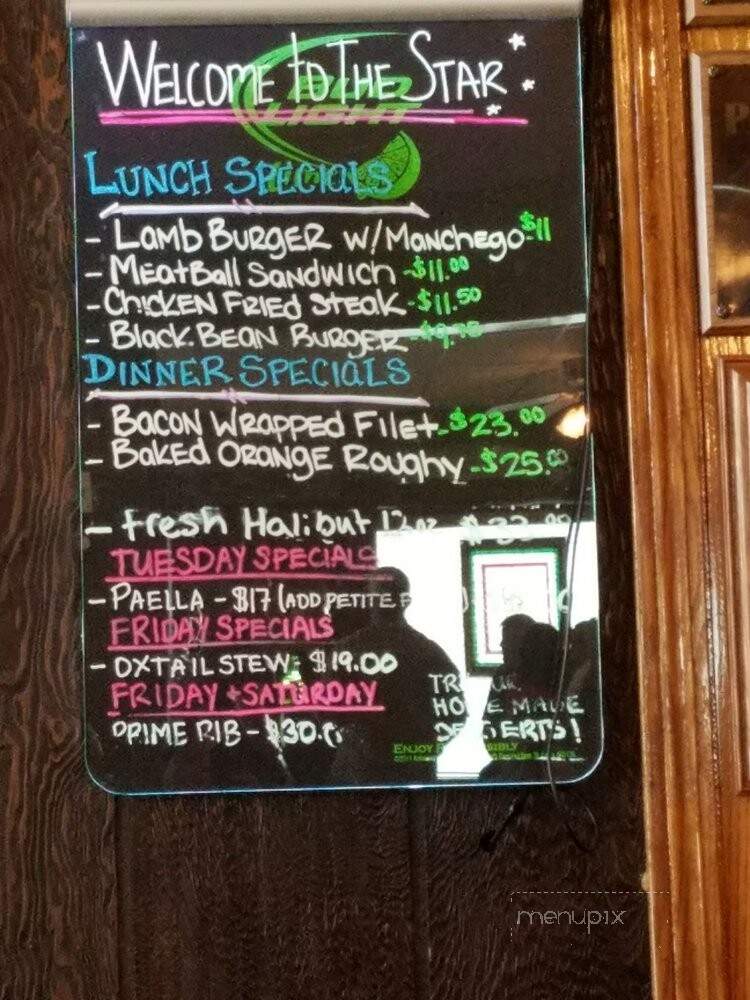 WELCOME to THE STAR
LIGHT
LUNCH SPECIALS
- Lamb BURGER w/Manchego $11
- MeatBall Sandwich -$11.00
- CHICKEN FRied Steak -$11.50
- Black BEAN BURGER -$9.75
DINNER SPECIALS
- BACON WRAPPED Filet -$23.00
- BAKED ORANGE Roughy -$25.00
- fresh Halibut
TUESDAY SPECIALS
- PAELLA - $17 (ADD PETITE
FRIDAY SPECIALS
- OXTAIL STEW - $19.00
FRIDAY + SATURDAY
PRIME RIB - $30.
HOME MADE
DESSERTS!
ENJOY
menupix